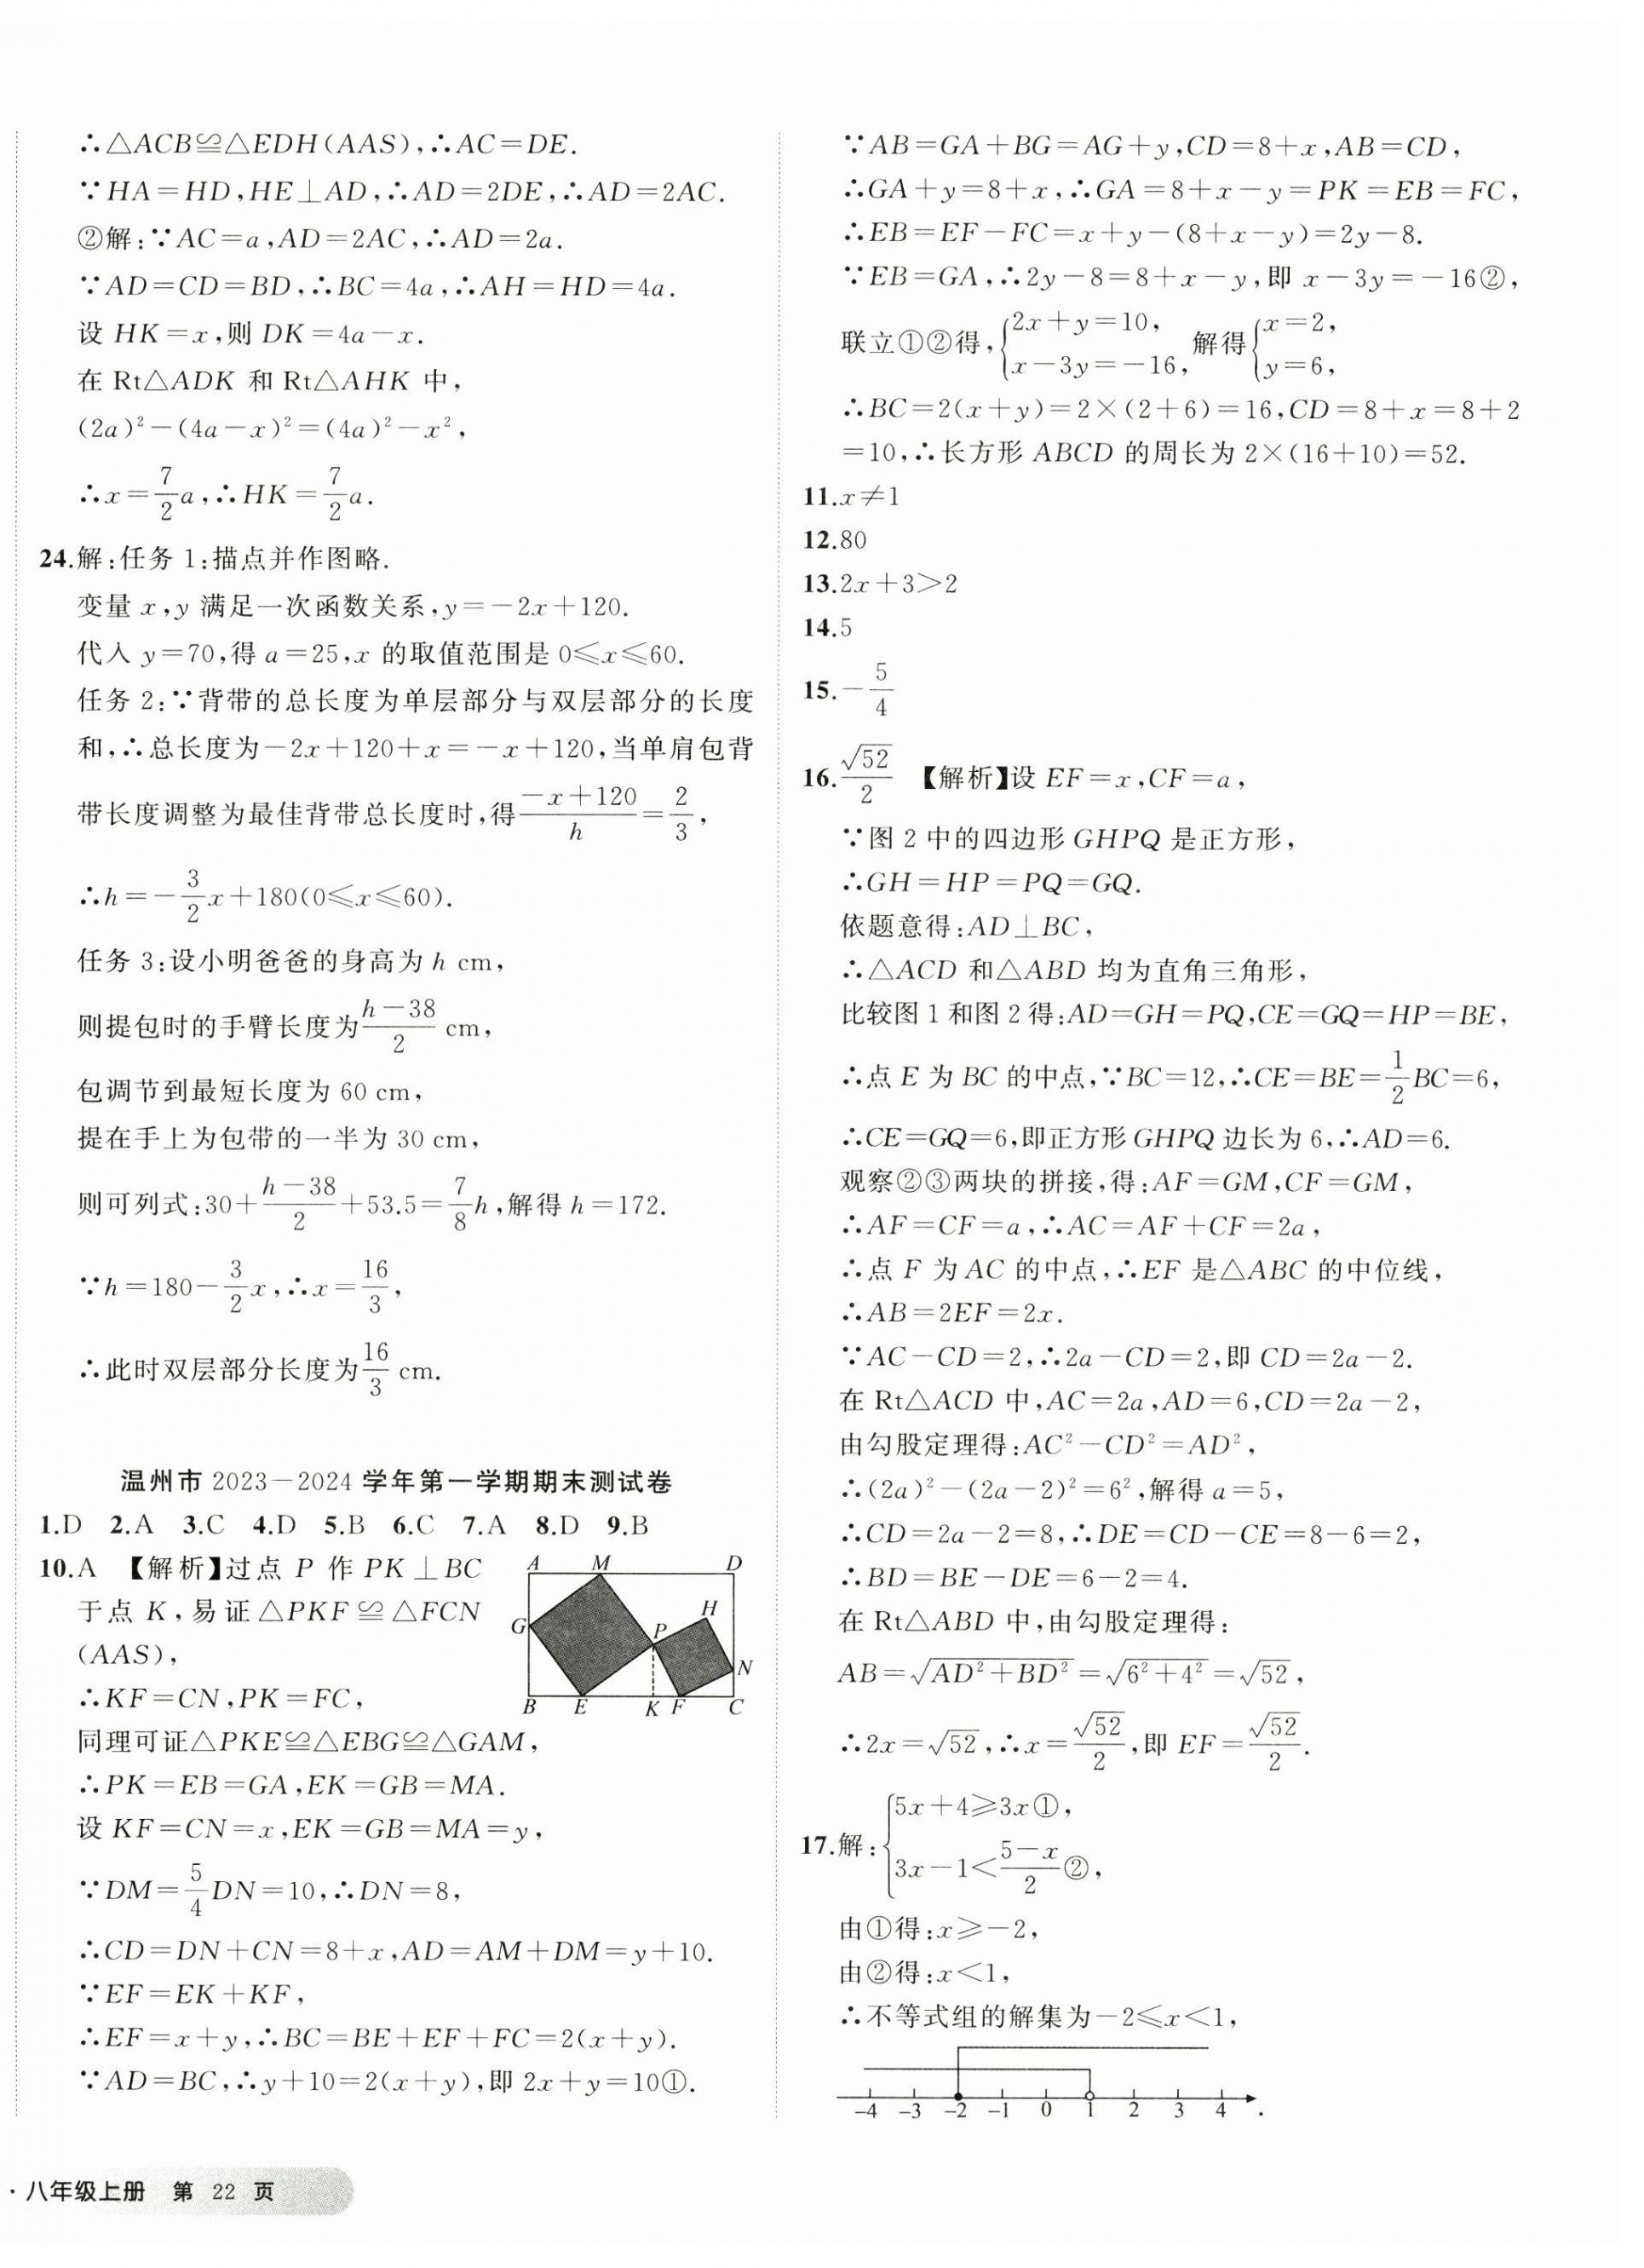 ∴△ACB≌△EDH(AAS),∴AC=DE.
∵HA=HD,HE⊥AD,∴AD=2DE,∴AD=2AC.
②解:∵AC=a,AD=2AC,∴AD=2a.
∵AD=CD=BD,∴BC=4a,∴AH=HD=4a.
设 HK=x,则 DK=4a-x.
在 Rt△ADK 和 Rt△AHK 中,
(2a)²-(4a-x)²=(4a)²-x²,
∴x=7/2 a,∴HK=7/2 a.
24.解:任务 1:描点并作图略.
变量 x,y 满足一次函数关系,y=-2x+120.
代入 y=70,得 a=25,x 的取值范围是 0≤x≤60.
任务 2:∵背带的总长度为单层部分与双层部分的长度
和,∴总长度为-2x+120+x=-x+120,当单肩包背
带长度调整为最佳背带总长度时,得(-x+120)/h=2/3,
∴h=-3/2 x+180(0≤x≤60).
任务 3:设小明爸爸的身高为 h cm,
则提包时的手臂长度为(h-38)/2 cm,
包调节到最短长度为 60 cm,
提在手上为包带的一半为 30 cm,
则可列式:30+(h-38)/2+53.5=7/8 h,解得 h=172.
∵h=180-3/2 x,∴x=16/3,
∴此时双层部分长度为16/3 cm.
温州市 2023-2024 学年第一学期期末测试卷
1.D 2.A 3.C 4.D 5.B 6.C 7.A 8.D 9.B
10.A 【解析】过点 P 作 PK⊥BC
于点 K,易证△PKF≌△FCN
(AAS),
∴KF=CN,PK=FC,
A M D
G H
P
N
B E K F C
同理可证△PKE≌△EBG≌△GAM,
∴PK=EB=GA,EK=GB=MA.
设 KF=CN=x,EK=GB=MA=y,
∵DM=5/4 DN=10,∴DN=8,
∴CD=DN+CN=8+x,AD=AM+DM=y+10.
∵EF=EK+KF,
∴EF=x+y,∴BC=BE+EF+FC=2(x+y).
∵AD=BC,∴y+10=2(x+y),即 2x+y=10①.
∵AB=GA+BG=AG+y,CD=8+x,AB=CD,
∴GA+y=8+x,∴GA=8+x-y=PK=EB=FC,
∴EB=EF-FC=x+y-(8+x-y)=2y-8.
∵EB=GA,∴2y-8=8+x-y,即 x-3y=-16②,
联立①②得,{2x+y=10, x-3y=-16, 解得{x=2, y=6,
∴BC=2(x+y)=2×(2+6)=16,CD=8+x=8+2
=10,∴长方形 ABCD 的周长为 2×(16+10)=52.
11.x≠1
12.80
13.2x+3>2
14.5
15.-5/4
16.√52/2 【解析】设 EF=x,CF=a,
∵图 2 中的四边形 GHPQ 是正方形,
∴GH=HP=PQ=GQ.
依题意得:AD⊥BC,
∴△ACD 和△ABD 均为直角三角形,
比较图 1 和图 2 得:AD=GH=PQ,CE=GQ=HP=BE,
∴点 E 为 BC 的中点,∵BC=12,∴CE=BE=1/2 BC=6,
∴CE=GQ=6,即正方形 GHPQ 边长为 6,∴AD=6.
观察②③两块的拼接,得:AF=GM,CF=GM,
∴AF=CF=a,∴AC=AF+CF=2a,
∴点 F 为 AC 的中点,∴EF 是△ABC 的中位线,
∴AB=2EF=2x.
∵AC-CD=2,∴2a-CD=2,即 CD=2a-2.
在 Rt△ACD 中,AC=2a,AD=6,CD=2a-2,
由勾股定理得:AC²-CD²=AD²,
∴(2a)²-(2a-2)²=6²,解得 a=5,
∴CD=2a-2=8,∴DE=CD-CE=8-6=2,
∴BD=BE-DE=6-2=4.
在 Rt△ABD 中,由勾股定理得:
AB=√(AD²+BD²)=√(6²+4²)=√52,
∴2x=√52,∴x=√52/2,即 EF=√52/2.
17.解:{5x+4≥3x①, 3x-1<(5-x)/2②,
由①得:x≥-2,
由②得:x<1,
∴不等式组的解集为-2≤x<1,
-4 -3 -2 -1 0 1 2 3 4 .
·八年级上册 第 22 页